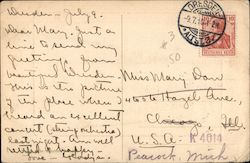 Dresden - July 9.
Dear Mary. Just a
line to send my
greeting from
beautiful Dresden
This is the picture
of the place where I
heard an excellent
concert (string orchestra)
last night. Am well
Love
DRESDEN
9.7.
ALTST.
10
DEUTSCHES REICH
#3
50
Miss Mary Dow
Hazel Ave.
Chicago, Ill.
U.S.A.
K 4014
Peacock, Mich